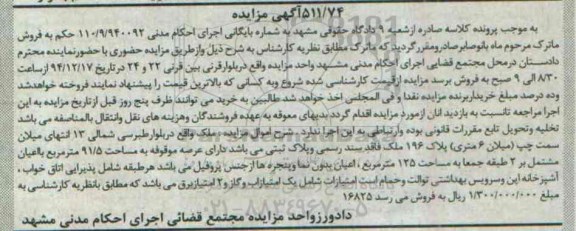 ۵۱۱/۷۴آگهی مزایده
به موجب پرونده کلاسه صادره ازشعبه ۹ دادگاه حقوقی مشهد به شماره بایگانی اجرای احکام مدنی ۱۱۰/۹/۹۴۰۰۹۲ حکم به فروش
ماترک مرحوم ماه بانوصابرصادرومقررگردید که ماترک مطابق نظریه کارشناس به شرح ذیل وازطریق مزایده حضوری با حضورنماینده محترم
دادستان درمحل مجتمع قضایی اجرای احکام مدنی مشهد واحد مزایده واقع دربلوارقرنی بین قرنی ۲۲ و ۲۴ در تاریخ ۹۴/۱۲/۱۷ ازساعت
۸/۳۰ الی ۹ صبح به فروش برسد مزایده ازقیمت کارشناسی شده شروع وبه کسانی که بالاترین قیمت را پیشنهاد نمایند فروخته خواهدشد
وده درصد مبلغ خریدار برنده مزایده نقدا و فی المجلس اخذ خواهد شد طالبین به خرید می توانند ظرف پنج روز قبل ازتاریخ مزایده به این
اجرا مراجعه تانسبت به بازدید انان ازمورد مزایده اقدام گردد بدیهای معوقه به عهده فروشندگان وهزینه های نقل وانتقال بالمناصفه می باشد
تخلیه وتحویل تابع مقررات قانونی بوده وارتباطی به این اجرا ندارد . شرح اموال مزایده : ملک واقع دربلوارطبرسی شمالی ۱۳ انتهای میلان
سمت چپ (میلان ۶ متری) پلاک ۱۹۶ ملک فاقد سند رسمی وپلاک ثبتی می باشد دارای عرصه موقوفه به مساحت ۹۱/۵ مترمربع بااعیان
مشتمل بر ۲ طبقه جمعا به مساحت ۱۲۵ مترمربع ، اعیان بدون نما وپنجره ها ازجنس پروفیل می باشد هرطبقه شامل پذیرایی اتاق خواب ،
آشپزخانه اپن وسرویس بهداشتی توالت وحمام است امتیازات شامل یک امتیازاب وگاز و۲ امتیازبرق می باشد که مطابق بانظریه کارشناسی به
مبلغ ۱/۳۰۰/۰۰۰/۰۰۰ ریال به فروش می رسد ۱۶۸۲۵
دادورزواحد مزایده مجتمع قضائی اجرای احکام مدنی مشهد